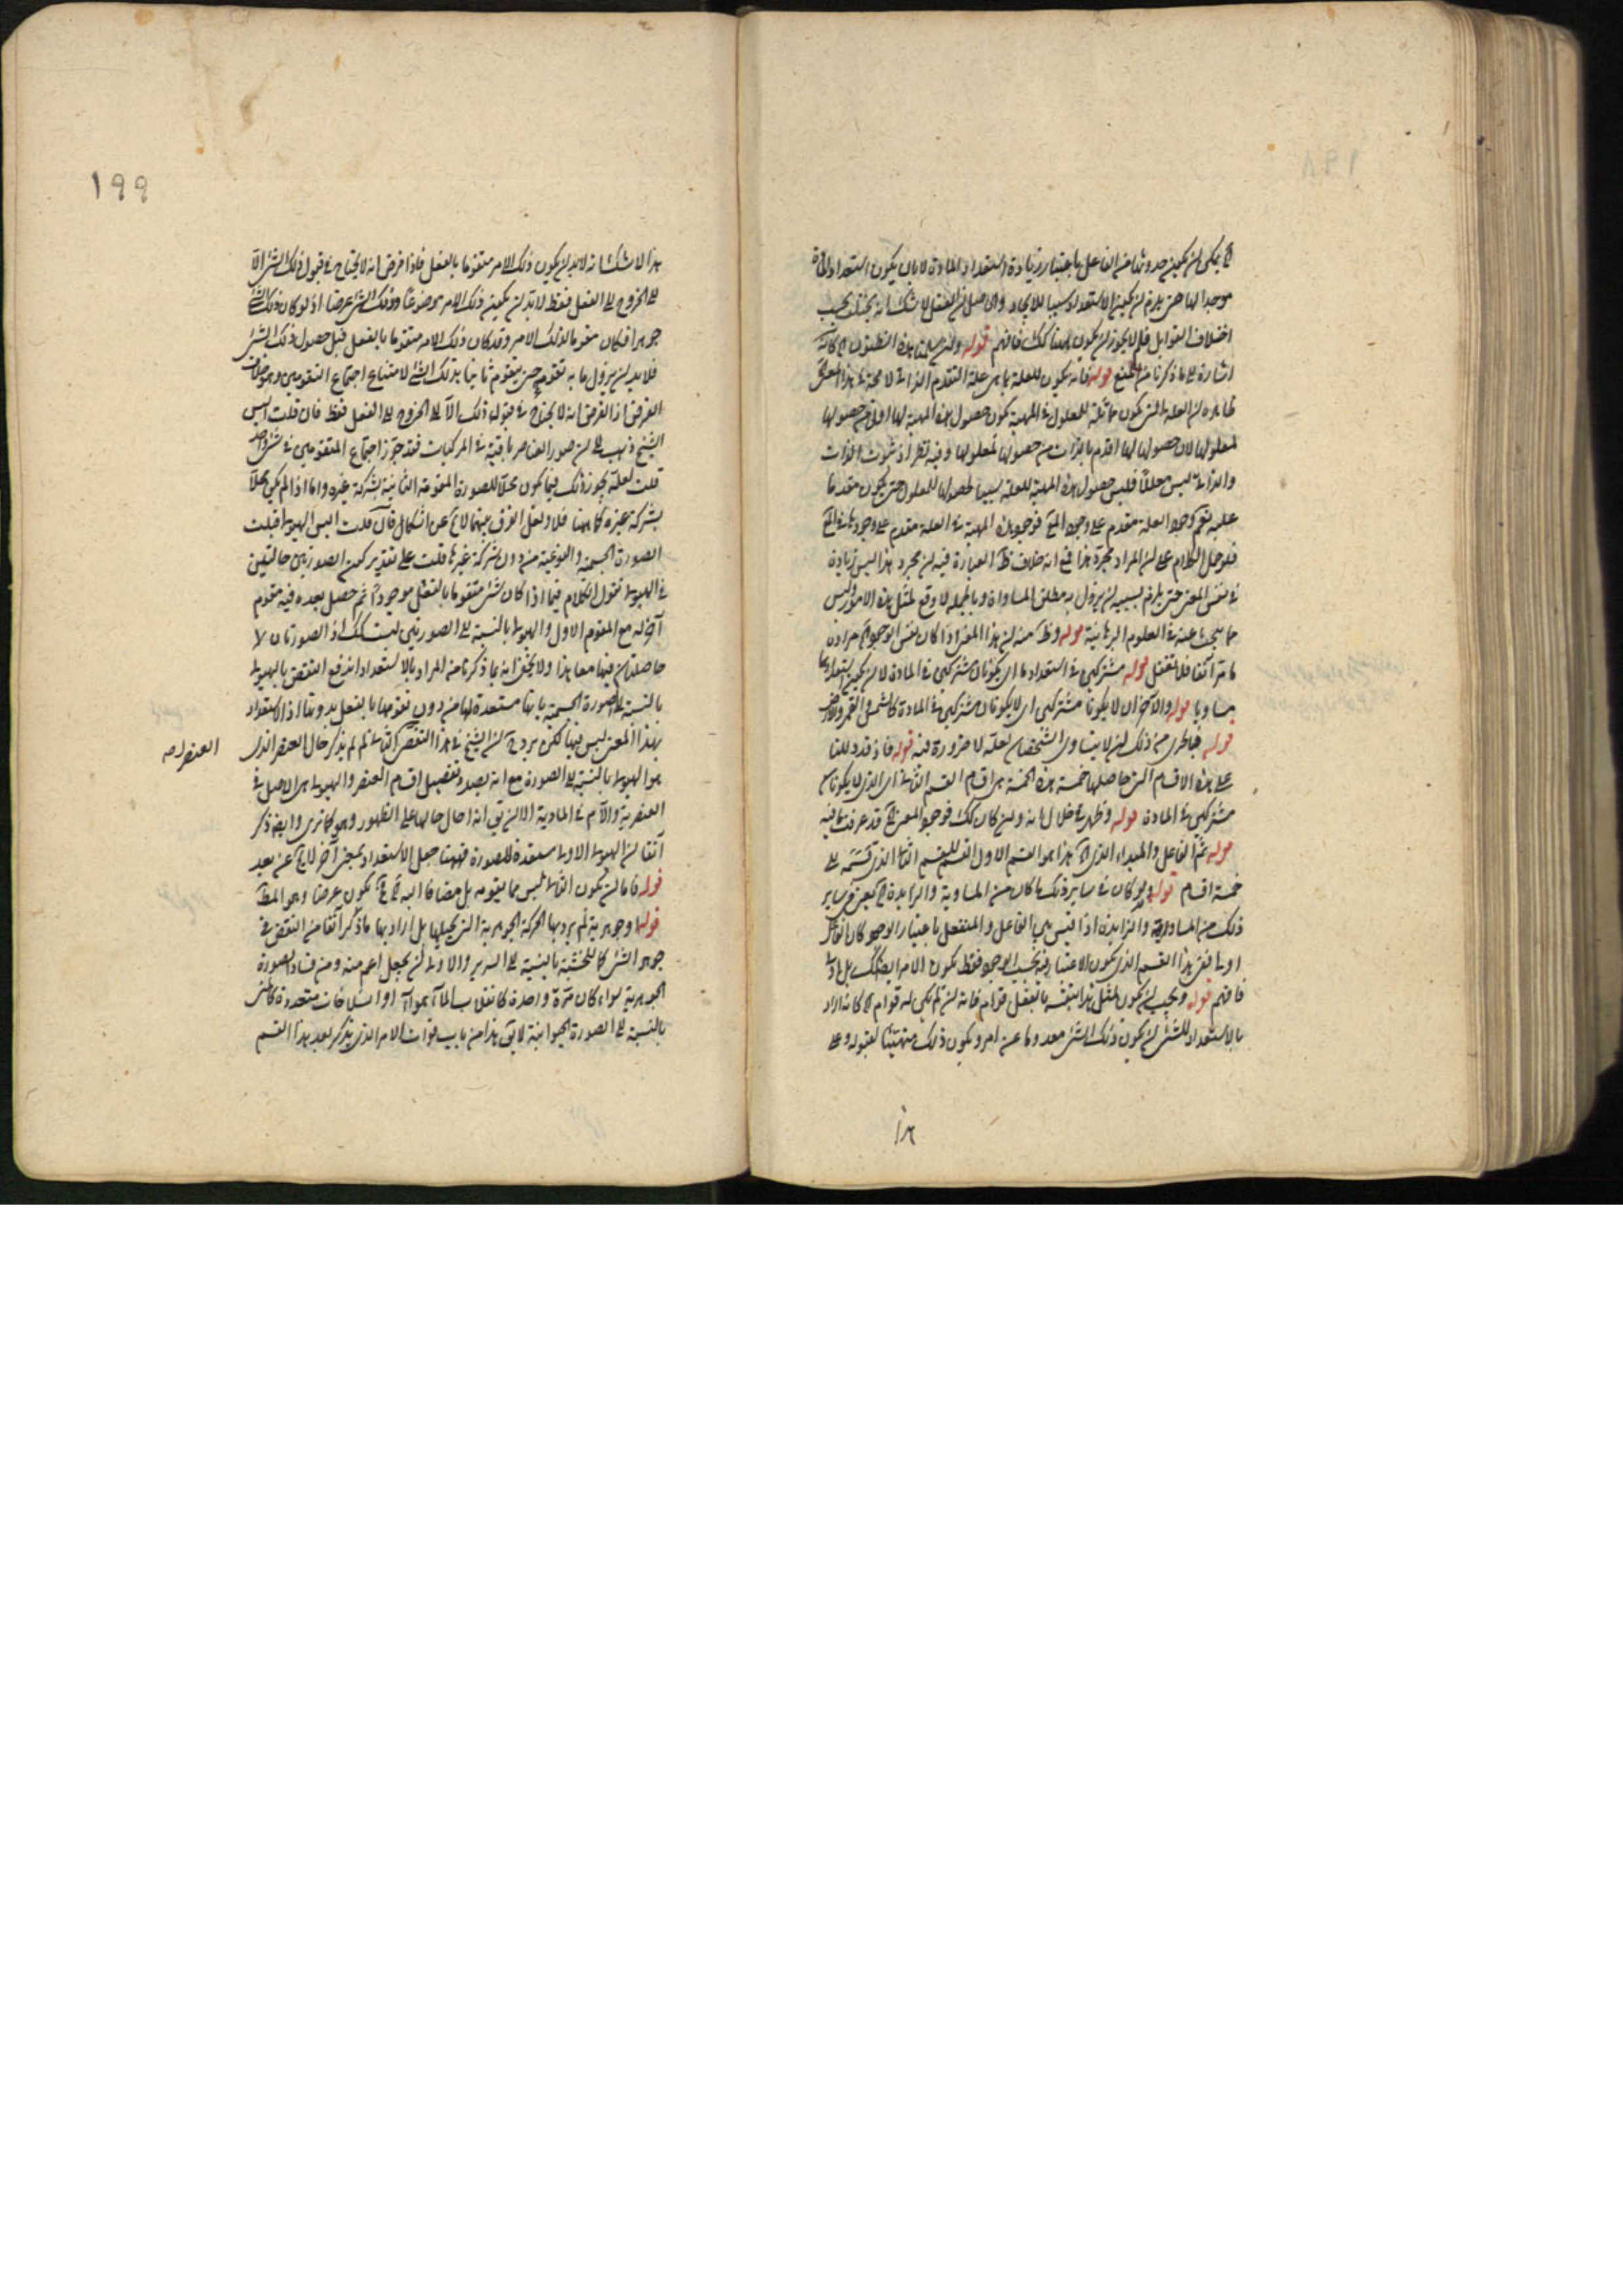 يمكن ان يكون حدوثها من الفاعل باعتبار زيادة استعداد المادة لا بان يكون استعداد المادة
موجدا لها حتى يلزم ان يكون الاستعداد سببا للايجاد والحاصل ان الفعل لا شك انه يختلف بحسب
اختلاف القوابل فلم لا يجوز ان يكون هيهنا كك فافهم قوله
اشارة الى ما ذكرنا من المنع قوله فانه يكون للعلة بما هي علة التقدم الذاتي لا محالة هذا
ظاهره ان العلة التي يكون مماثلة للمعلول في المهية يكون حصول هذه المهية لها اولا من حصولها
لمعلولها لان حصولها لها اقدم بالذات من حصولها لمعلولها وفيه نظر اذ ثبوت الذات
والذاتي ليس معللا فليس حصول هذه المهية للعلة سببا لحصولها للمعلول حتى يكون مقدما
عليه نعم وجود العلة مقدم على وجود المع فوجود هذه المهية في العلة مقدم على وجودها في المع
فلو حمل الكلام على ان المراد مجرد هذا فمع انه خلاف ظ العبارة فيه ان مجرد هذا ليس زيادة
في نفس المعنى حتى يلزم بسببه ان يزول به مطلق المساواة وبالجملة لا وقع لمثل هذه الامور وليس
مما يبحث عنه في العلوم البرهانية قوله وظ منه ان هذا المعنى اذا كان نفس الوجود
ما مر آنفا فلا تغفل قوله مشتركين في استعداد ما اي يكونان مشتركين في المادة لا ان يكون استعدادهما
مساويا قوله والآخر ان لا يكونا مشتركين اي لا يكونان مشتركين في المادة كالشمس والقمر والارض
قوله فبالحري من ذلك ان لا يتساوى الشخصان لعله لا ضرورة فيه قوله فاذ قد دللنا
على هذه الاقسام التي حاصلها خمسة هذه الخمسة هي اقسام القسم الثاني اي الذي لا يكونان
مشتركين في المادة قوله وظهر في خلال انه وان كان كك فوجود المعنى قد عرفت ما فيه
قوله ثم الفاعل والمبداء الذي هذا هو القسم الاول للقسم الثاني الذي قسمه الى
خمسة اقسام قوله ولو كان في ساير ذلك ما كان من المساوية والزايدة يعني في ساير
ذلك من المساوية والزايدة اذا قيس بين الفاعل والمنفعل باعتبار الوجود كان الفاعل
اولى ففي هذا القسم الذي يكون الاعتبار فيه بحسب الوجود فقط يكون الامر ايضا كك بل اولى
فافهم قوله ويجب ان يكون لمثل هذا بنفسه بالفعل قوام فانه ان لم يكن له قوام كانه اراد
بالاستعداد للشئ ان يكون ذلك الشئ معدوما عن امر ويكون ذلك متهيئا لقبوله وعلى
هذا
١٩٩
هذا لا شك انه لابد ان يكون ذلك الامر متقوما بالفعل فاذا فرض انه لا يحتاج في قبول ذلك الشئ الا
الى الخروج الى الفعل فقط لابد ان يكون ذلك الامر موضوعا وذلك الشئ عرضا اذ لو كان ذلك الشئ
جوهرا فكان مقوما لذلك الامر وقد كان ذلك الامر متقوما بالفعل قبل حصول ذلك الشئ
فلابد ان يزول ما به تقومه حتى يتقوم ثانيا بذلك الشئ لامتناع اجتماع المقومين وهو خلاف
الفرض اذ الفرض انه لا يحتاج في قبوله ذلك الا الى الخروج الى الفعل فقط فان قلت اليس
الشيخ ذهب الى ان صور العناصر باقية في المركبات فقد جوز اجتماع المقومين في شئ واحد
قلت لعله يجوز ذلك فيما يكون محلا للصورة المقومة الثانية بشركة غيره واما اذا لم يكن محلا
بشركة غيره كما هيهنا فلا ولعل الفرق بينهما لا يخ عن اشكال فان قلت اليس الهيولى قبلت
الصورة الجسمية والنوعية من دون شركة غيرها قلت على تقدير كون الصورتين حالتين
في الهيولى نقول الكلام فيما اذا كان شئ متقوما بالفعل موجودا ثم حصل بعده فيه مقوم
آخر له مع المقوم الاول والهيولى بالنسبة الى الصورتين ليست كك اذ الصورتان لا
حاصلتان فيها معا هذا ولا يخفى انه بما ذكرنا من المراد بالاستعداد اندفع النقض بالهيولى
بالنسبة الى الصورة الجسمية بانها مستعدة لها من دون تقومها بالفعل بدونها اذ الاستعداد
بهذا المعنى ليس فيها لكن يرد ان الشيخ في هذا التقسيم لم لم يذكر حال العنصر الذي
العنصر له صه
هو الهيولى بالنسبة الى الصورة مع انه بصدد تفصيل اقسام العنصر والهيولى هي الاصل في
العنصرية والام في المادية الا ان يق انه احال حالها على الظهور وهو كما ترى وايضا ذكر
آنفا ان الهيولى الاولى مستعدة للصورة فههنا جعل الاستعداد بمعنى آخر لا يخ عن بعد
قوله فاما ان يكون الثاني ليس مما يقومه بل مضافا اليه يكون عرضا وهو المط
قوله وجوهرية لم يرد بها الحركة الجوهرية التي يحيلها بل اراد بها ما ذكر آنفا من النقض في
جوهر الشئ كالخشبة بالنسبة الى السرير والاولى ان يجعل اعم منه ومن فساد الصورة
الجوهرية سواء كان مرة واحدة كانقلاب الماء هواء او انسلاخات متعددة كالمني
بالنسبة الى الصورة الحيوانية لا يق هذا من باب فوات الامر الذي يذكر بعد هذا القسم